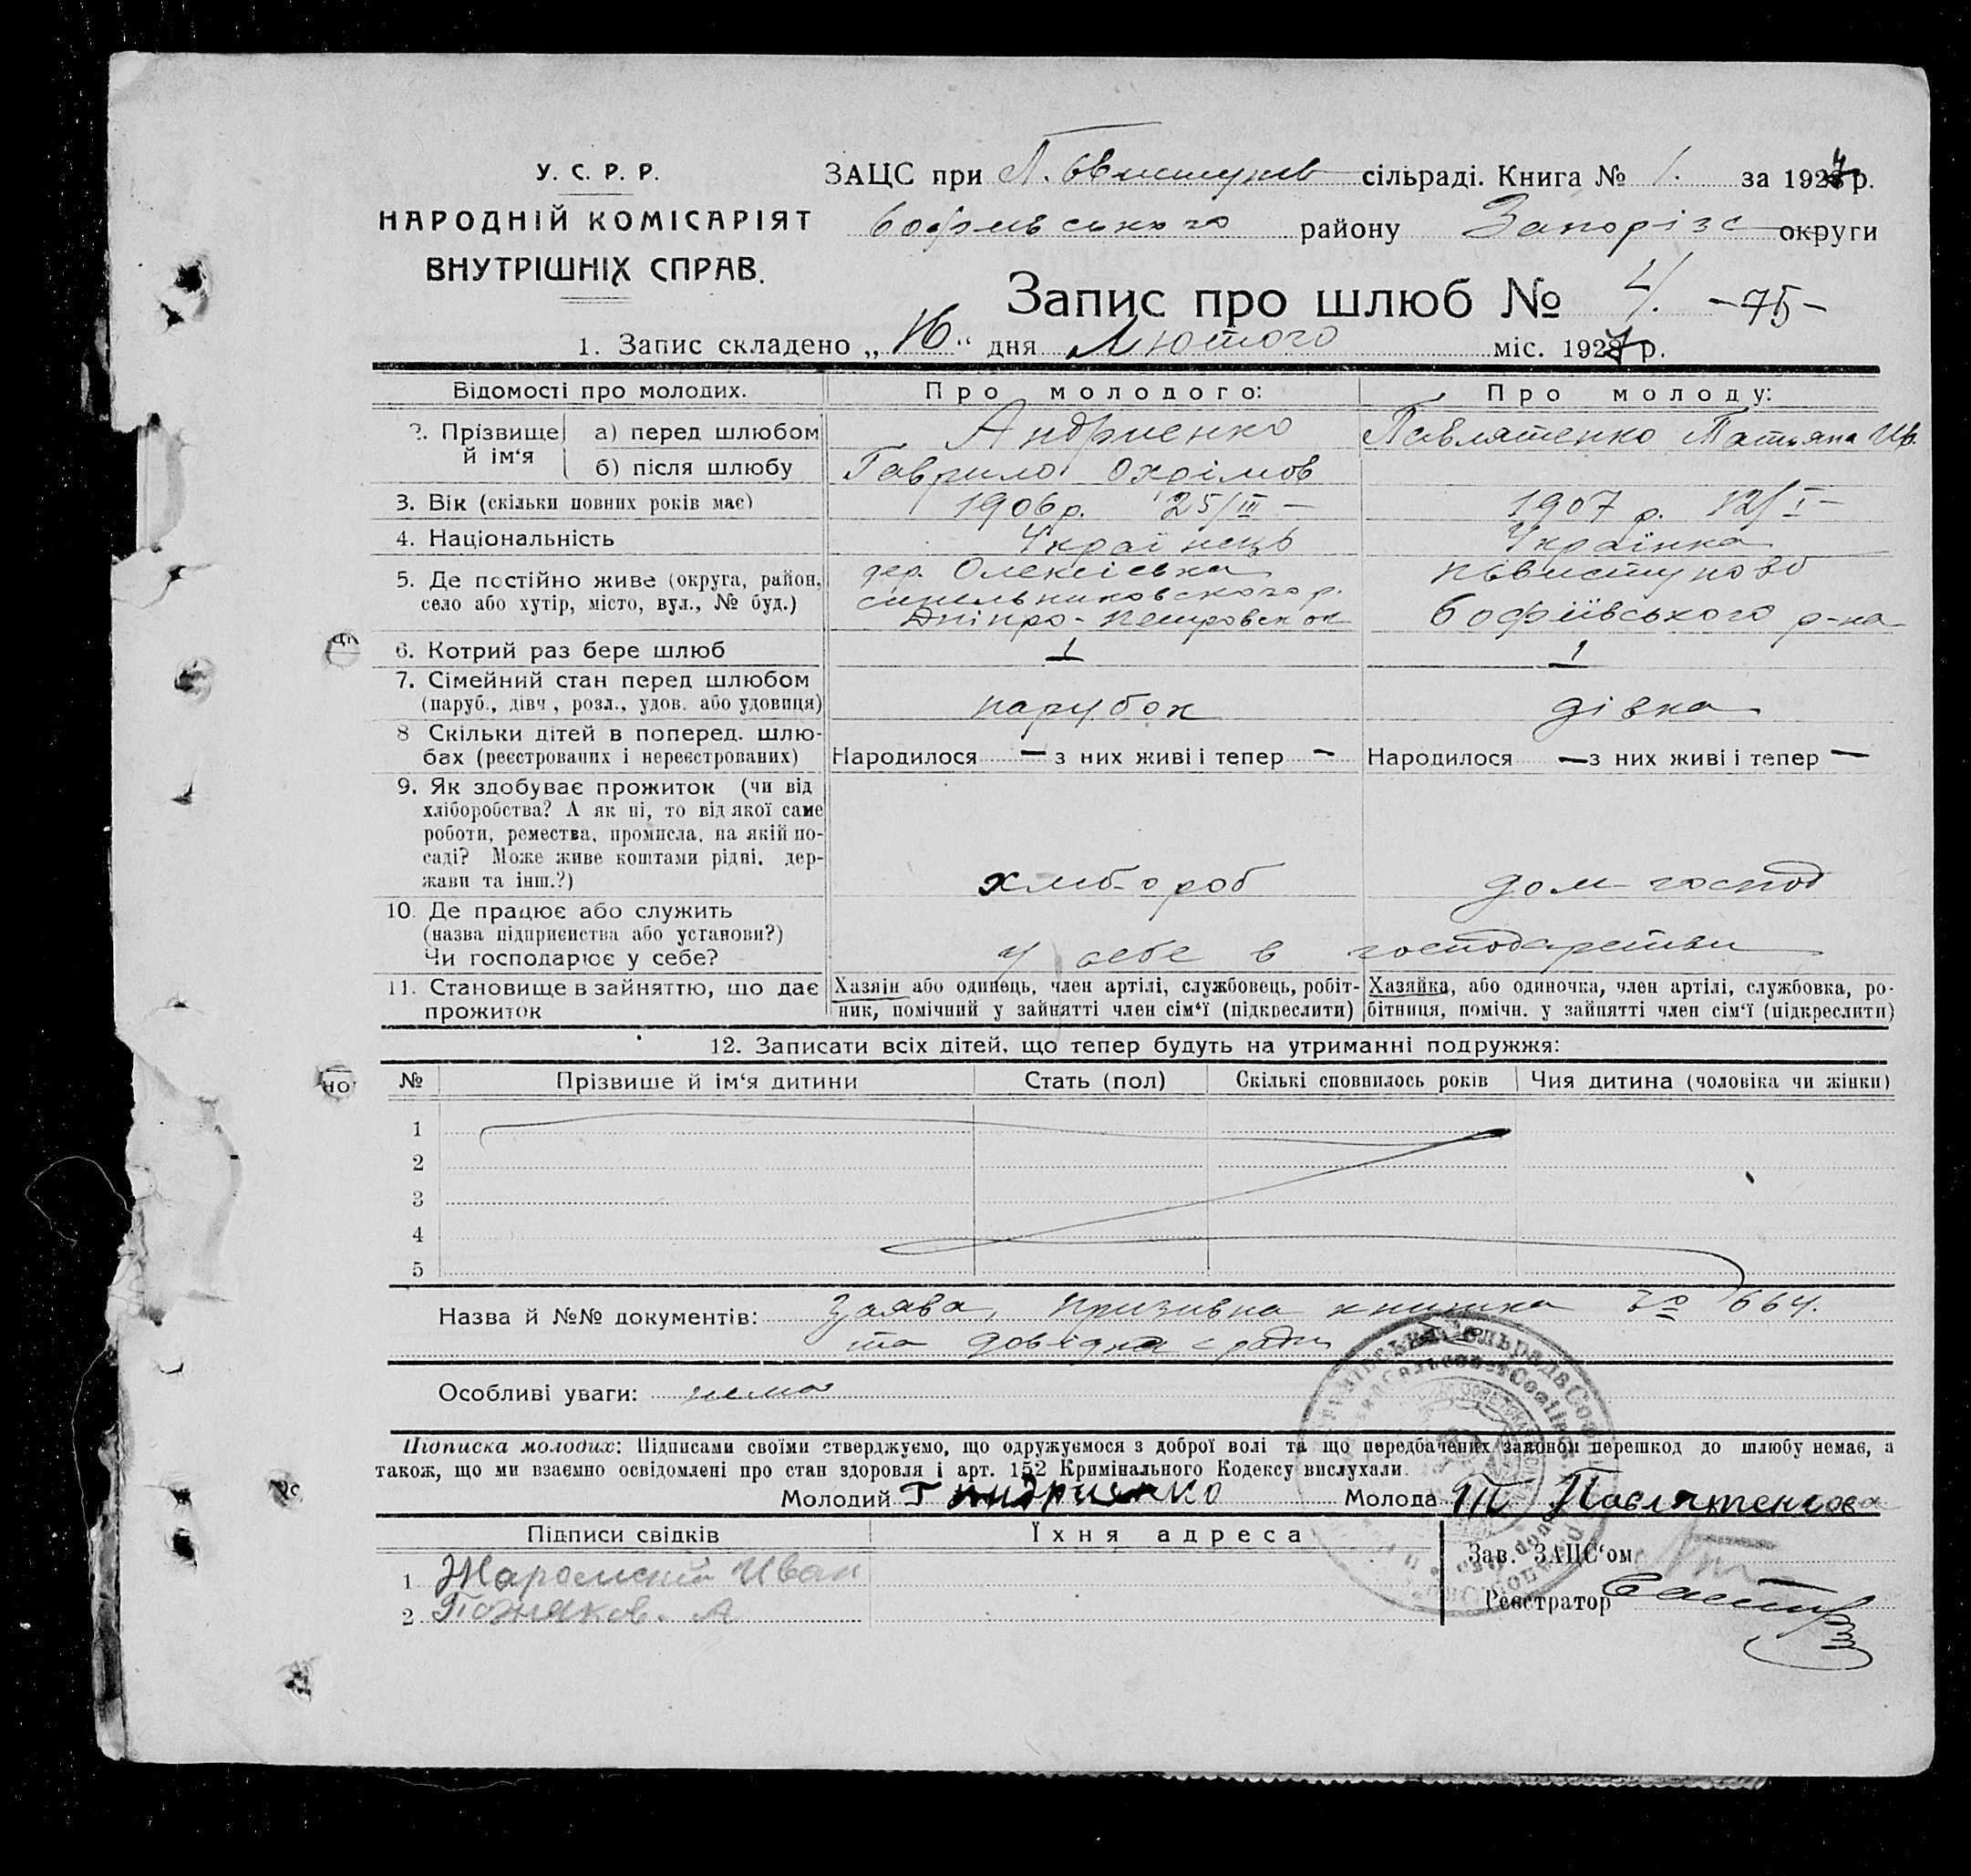 У. С. Р. Р.
НАРОДНІЙ КОМІСАРІЯТ
ВНУТРІШНІХ СПРАВ.
ЗАЦС при сільраді. Книга № 1. за 1927 р.
району Запорізс округи
Запис про шлюб № 4. -75-
1. Запис складено „16“ дня Лютого міс. 1927 р.
Відомості про молодих. Про молодого: Про молоду:
2. Прізвище й ім‘я а) перед шлюбом Андриенко Павлятенко Татьяна Ив.
б) після шлюбу Гаврило Охрімов
3. Вік (скільки повних років має) 1906 р. 25/III – 1907 р. 12/I –
4. Національність Українець Українка
5. Де постійно живе (округа, район, дер. Олексіевка
село або хутір, місто, вул., № буд.) синельниковского р. Софіївського р-на
Дніпро-Петровск ок
6. Котрий раз бере шлюб 1 1
7. Сімейний стан перед шлюбом
(паруб., дівч., розл., удов. або удовиця) парубок дівка
8 Скільки дітей в поперед. шлю-
бах (реєстрованих і нереєстрованих) Народилося — з них живі і тепер — Народилося — з них живі і тепер —
9. Як здобуває прожиток (чи від
хліборобства? А як ні, то від якої саме
роботи, ремества, промисла, на якій по-
саді? Може живе коштами рідні, дер-
жави та інш.?) хліб-ороб дом-господ
10. Де працює або служить
(назва підприємства або установи?)
Чи господарює у себе? у себе в господарстви
11. Становище в зайняттю, що дає Хазяін або одинець, член артілі, службовець, робіт- Хазяйка, або одиночка, член артілі, службовка, ро-
прожиток ник, помічний у зайнятті член сім‘ї (підкреслити) бітниця, помічн. у зайнятті член сім‘ї (підкреслити)
12. Записати всіх дітей, що тепер будуть на утриманні подружжя:
№ Прізвише й ім‘я дитини Стать (пол) Скількі сповнилось років Чия дитина (чоловіка чи жінки)
1
2
3
4
5
Назва й №№ документів: Заява, призивна книжка № 664.
та довідка с ради
Особливі уваги: нема
Підписка молодих: Підписами своїми стверджуємо, що одружуємося з доброї волі та що передбачених законом перешкод до шлюбу немає, а
також, що ми взаємно освідомлені про стан здоровля і арт. 152 Кримінального Кодексу вислухали.
Молодий Г Андриенко Молода Т Павлятенкова
Підписи свідків Їхня адреса
Зав. ЗАЦС‘ом
1 Иван
2 Позняков. А Реєстратор